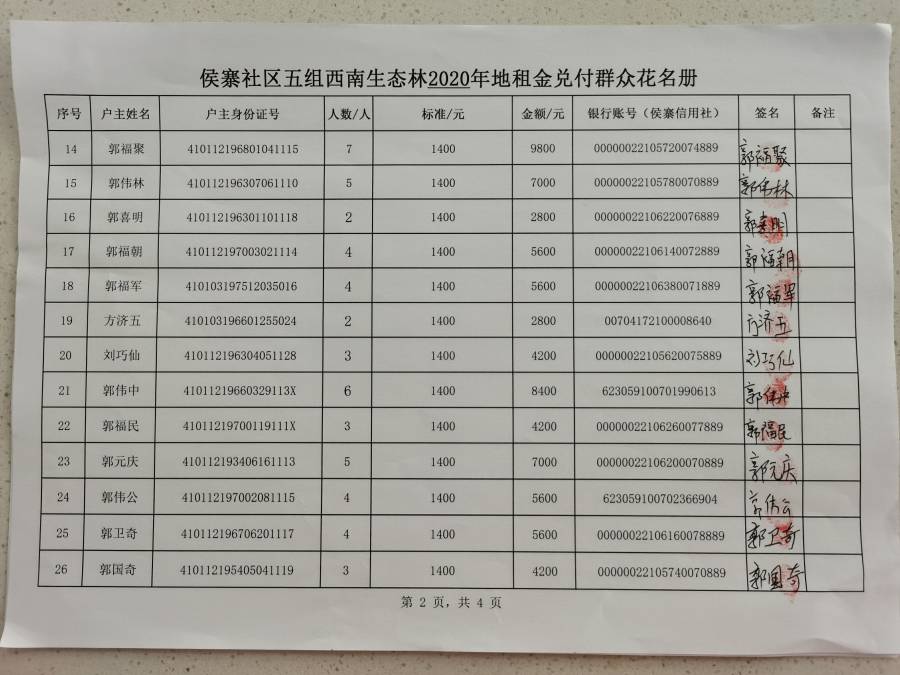 侯寨社区五组西南生态林2020年地租金兑付群众花名册
序号 户主姓名 户主身份证号 人数/人 标准/元 金额/元 银行账号（侯寨信用社） 签名 备注
14 郭福聚 410112196801041115 7 1400 9800 00000022105720074889 郭福聚
15 郭伟林 410112196307061110 5 1400 7000 00000022105780070889 郭伟林
16 郭喜明 410112196301101118 2 1400 2800 00000022106220076889 郭喜明
17 郭福朝 410112197003021114 4 1400 5600 00000022106140072889 郭福朝
18 郭福军 410103197512035016 4 1400 5600 00000022106380071889 郭福军
19 方济五 410103196601255024 2 1400 2800 00704172100008640 方济五
20 刘巧仙 410112196304051128 3 1400 4200 00000022105620075889 刘巧仙
21 郭伟中 41011219660329113X 6 1400 8400 623059100701990613 郭伟中
22 郭福民 41011219700119111X 3 1400 4200 00000022106260077889 郭福民
23 郭元庆 410112193406161113 5 1400 7000 00000022106200070889 郭元庆
24 郭伟公 410112197002081115 4 1400 5600 623059100702366904 郭伟公
25 郭卫奇 410112196706201117 4 1400 5600 00000022106160078889 郭卫奇
26 郭国奇 410112195405041119 3 1400 4200 00000022105740070889 郭国奇
第 2 页，共 4 页